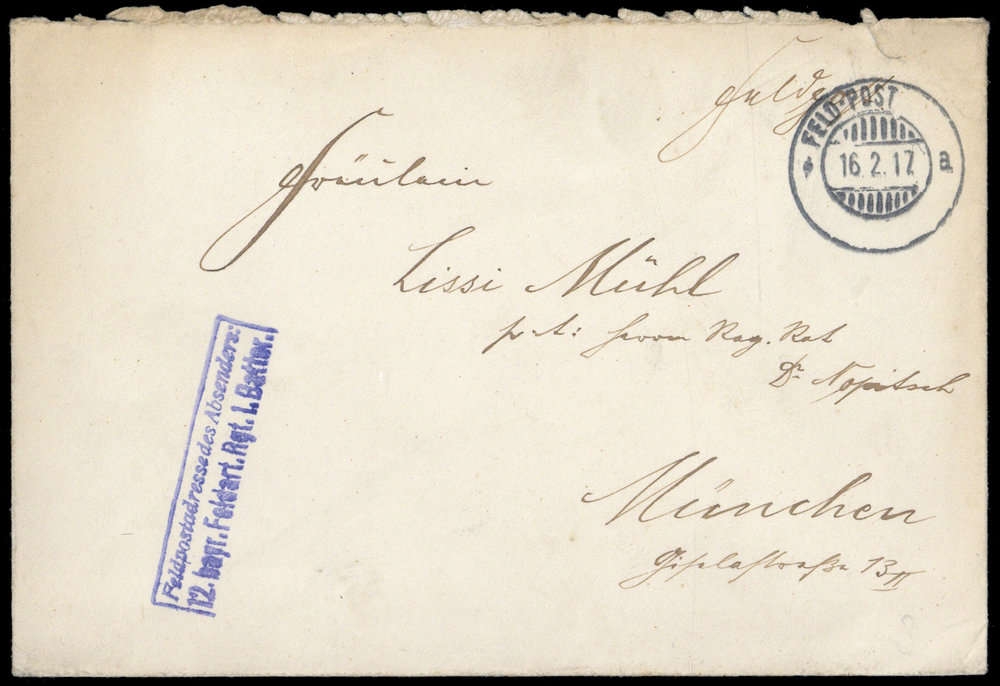 FELD-POST
16.2.17
a
Fräulein
Lissi Mühl
p. A: Herrn Reg. Rat
Dr Nopitsch
München
Giselastraße 13 II
Feldpostadresse des Absenders:
12. bayr. Feldart. Rgt. 1. Batter.